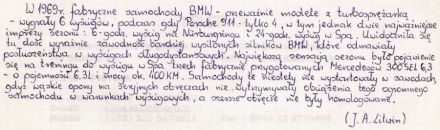 W 1969r. fabryczne samochody BMW - przeważnie modele z turbosprężarką
- wygrały 6 wyścigów, podczas gdy Porsche 911 - tylko 4, w tym jednak dwie najważniejsze
imprezy sezonu : 6-godz. wyścig na Nürburgringu i 24-godz. wyścig w Spa. Uwidoczniła się
tu dość wyraźnie zawodność bardziej wysilonych silników BMW, które odmawiały
posłuszeństwa w wyścigach długodystansowych. Największą sensacją sezonu było pojawienie
się na treningu do wyścigu w Spa trzech fabrycznie przygotowanych Mercedesów 300 SEL 6.3
- o pojemności 6,3 l i mocy ok. 400 KM. Samochody te niestety nie wystartowały w zawodach,
gdyż wąskie opony na seryjnych obręczach nie wytrzymywały obciążenia tego ogromnego
samochodu w warunkach wyścigowych, a szersze obręcze nie były homologowane.
(J. A. Litwin)